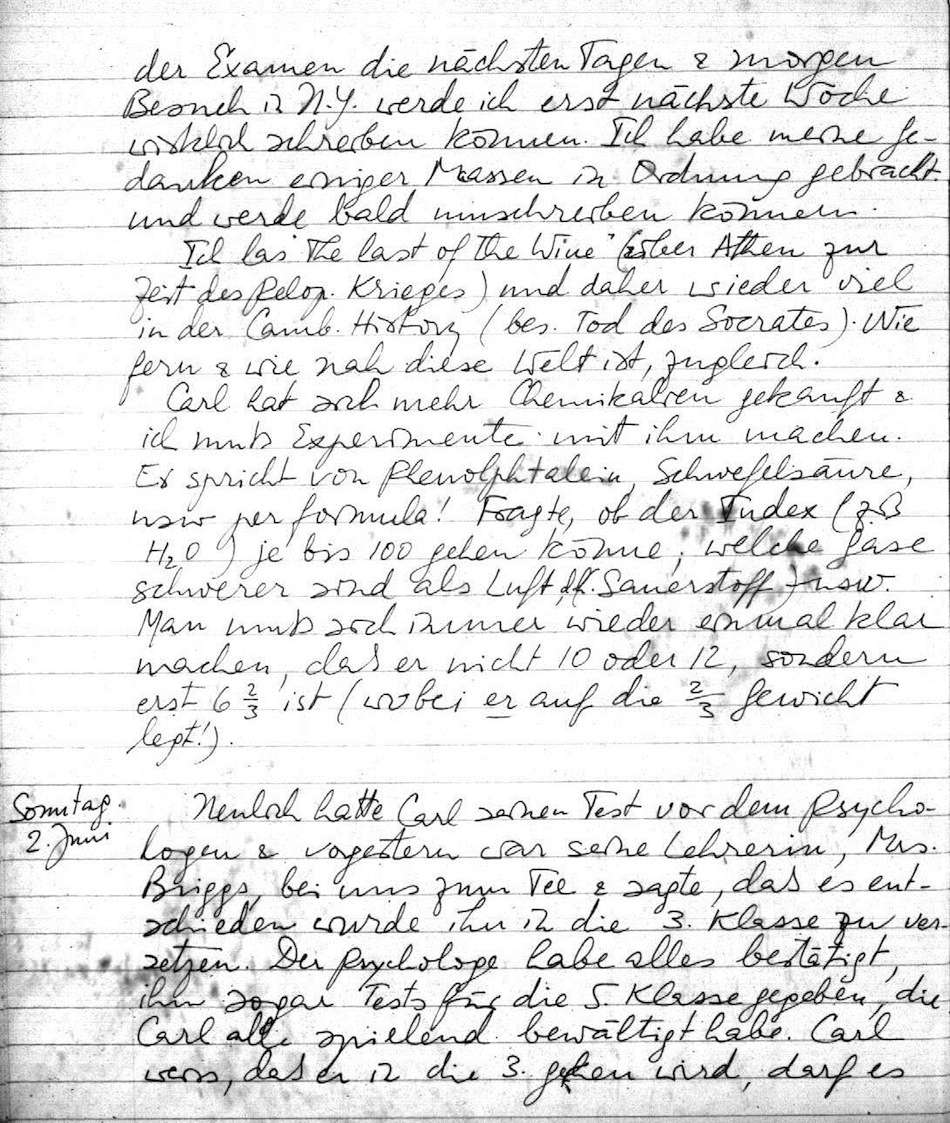 der Examen die nächsten Tagen & morgen
Besuch in N.Y. werde ich erst nächste Woche
wirklich schreiben können. Ich habe meine Ge-
danken einiger Massen in Ordnung gebracht
und werde bald umschreiben können.
Ich las "The Last of the Wine" (über Athen zur
Zeit des Pelop. Krieges) und daher wieder viel
in der Camb. History (bes. Tod des Socrates). Wie
fern & wie nah diese Welt ist, zugleich.
Carl hat sich mehr Chemikalien gekauft &
ich muß Experimente mit ihm machen.
Er spricht von Phenolphtalein, Schwefelsäure,
usw per formula! Fragte, ob der Index (z.B
H₂O) je bis 100 gehen könne; welche Gase
schwerer sind als Luft, Sauerstoff) usw.
Man muß sich immer wieder einmal klar
machen, daß er nicht 10 oder 12, sondern
erst 6 2/3 ist (wobei er auf die 2/3 Gewicht
legt!).
Sonntag
2. Juni
Neulich hatte Carl seinen Test vor dem Psycho-
logen & vorgestern war seine Lehrerin, Mrs.
Briggs, bei uns zum Tee & sagte, daß es ent-
schieden wurde ihn in die 3. Klasse zu ver-
setzen. Der Psychologe habe alles bestätigt,
ihm sogar Tests für die 5. Klasse gegeben, die
Carl alle spielend bewältigt habe. Carl
weiss, daß er in die 3. gehen wird, darf es